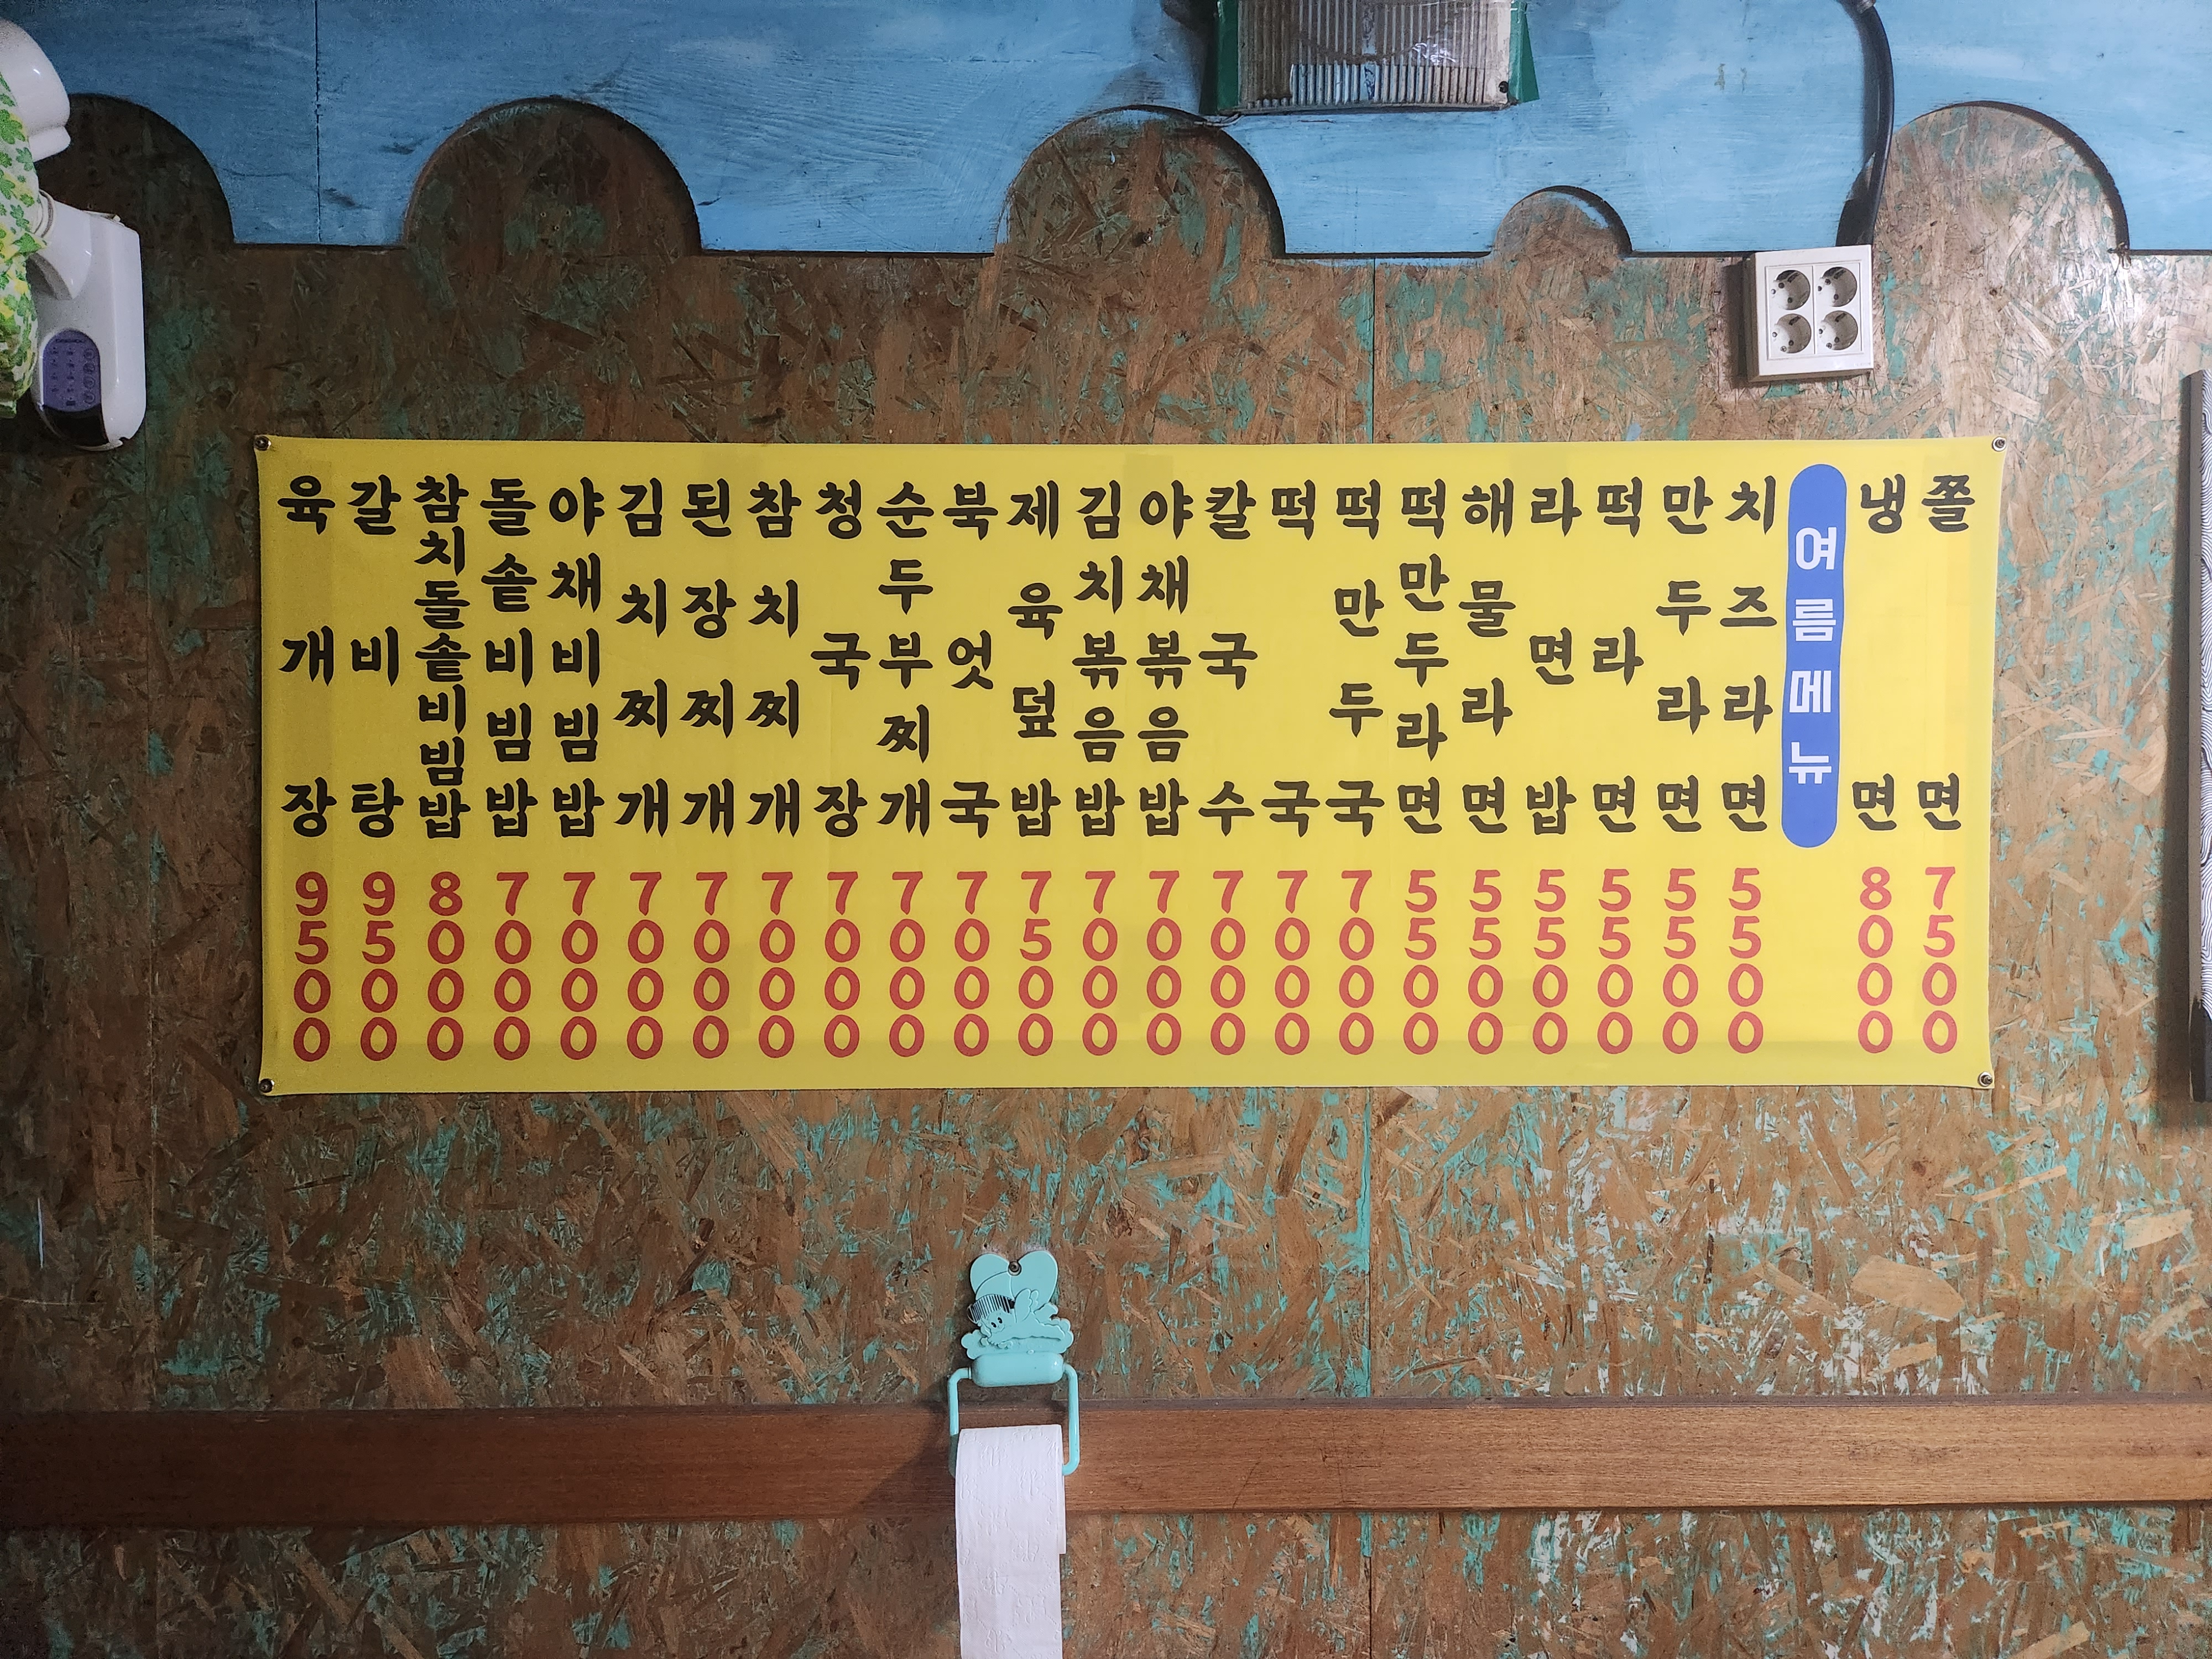 육개장 9500
갈비탕 9500
참치돌솥비빔밥 8000
돌솥비빔밥 7000
야채비빔밥 7000
김치찌개 7000
된장찌개 7000
참치찌개 7000
청국장 7000
순두부찌개 7000
북엇국 7000
제육덮밥 7500
김치볶음밥 7000
야채볶음밥 7000
칼국수 7000
떡국 7000
떡만두국 7000
떡만두라면 5500
해물라면 5500
라면밥 5500
떡라면 5500
만두라면 5500
치즈라면 5500
여름메뉴
냉면 8000
쫄면 7500